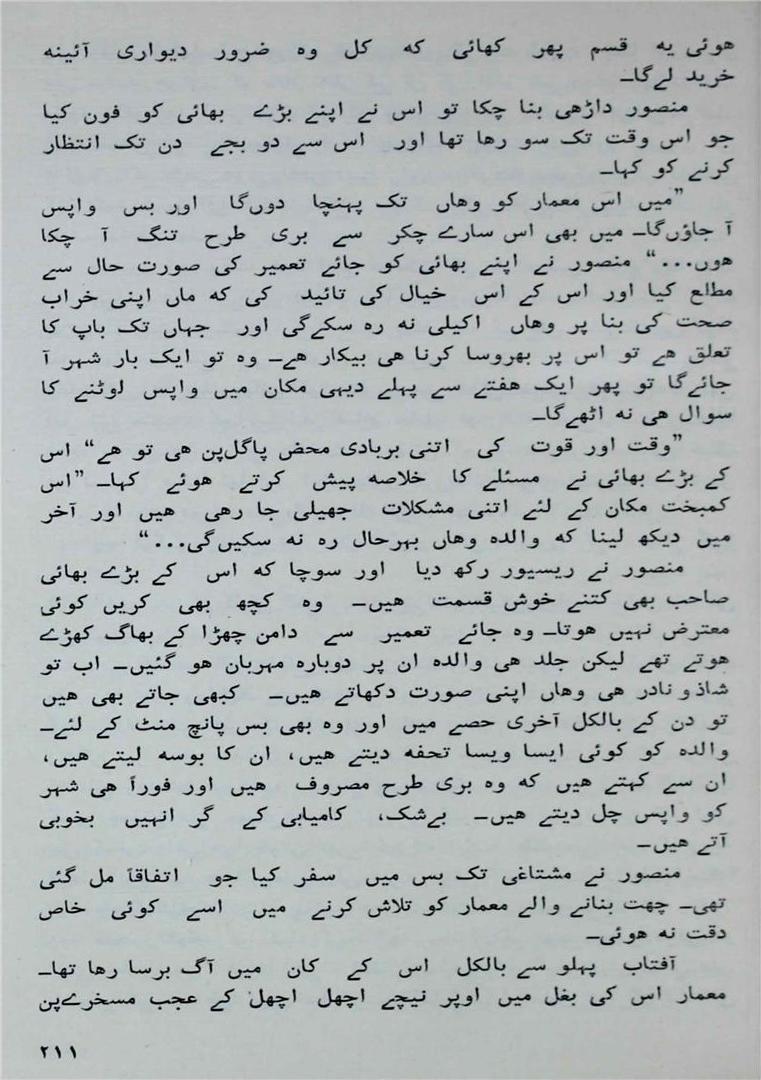 هوئی یه قسم پهر کهائی که کل وه ضرور دیواری آئینه
خرید لےگا۔
منصور داڑهی بنا چکا تو اس نے اپنے بڑے بهائی کو فون کیا
جو اس وقت تک سو رها تها اور اس سے دو بجے دن تک انتظار
کرنے کو کہا۔
”میں اس معمار کو وهاں تک پہنچا دوںگا اور بس واپس
آ جاؤںگا۔ میں بهی اس سارے چکر سے بری طرح تنگ آ چکا
هوں...“ منصور نے اپنے بهائی کو جائے تعمیر کی صورت حال سے
مطلع کیا اور اس کے اس خیال کی تائید کی که ماں اپنی خراب
صحت کی بنا پر وهاں اکیلی نه ره سکےگی اور جہاں تک باپ کا
تعلق هے تو اس پر بهروسا کرنا هی بیکار هے۔ وه تو ایک بار شہر آ
جائےگا تو پهر ایک هفتے سے پہلے دیہی مکان میں واپس لوٹنے کا
سوال هی نه اٹهےگا۔
”وقت اور قوت کی اتنی بربادی محض پاگلپن هی تو هے“ اس
کے بڑے بهائی نے مسئلے کا خلاصه پیش کرتے هوئے کہا۔ ”اس
کمبخت مکان کے لئے اتنی مشکلات جهیلی جا رهی هیں اور آخر
میں دیکھ لینا که والده وهاں بہرحال ره نه سکیںگی...“
منصور نے ریسیور رکھ دیا اور سوچا که اس کے بڑے بهائی
صاحب بهی کتنے خوش قسمت هیں۔ وه کچھ بهی کریں کوئی
معترض نہیں هوتا۔ وه جائے تعمیر سے دامن چهڑا کے بهاگ کهڑے
هوتے تهے لیکن جلد هی والده ان پر دوباره مہربان هو گئیں۔ اب تو
شاذ و نادر هی وهاں اپنی صورت دکهاتے هیں۔ کبهی جاتے بهی هیں
تو دن کے بالکل آخری حصے میں اور وه بهی بس پانچ منٹ کے لئے۔
والده کو کوئی ایسا ویسا تحفه دیتے هیں، ان کا بوسه لیتے هیں،
ان سے کہتے هیں که وه بری طرح مصروف هیں اور فوراً هی شہر
کو واپس چل دیتے هیں۔ بےشک، کامیابی کے گر انہیں بخوبی
آتے هیں۔
منصور نے مشتاغی تک بس میں سفر کیا جو اتفاقاً مل گئی
تهی۔ چهت بنانے والے معمار کو تلاش کرنے میں اسے کوئی خاص
دقت نه هوئی۔
آفتاب پہلو سے بالکل اس کے کان میں آگ برسا رها تها۔
معمار اس کی بغل میں اوپر نیچے اچهل اچهل کے عجب مسخرےپن
۲۱۱